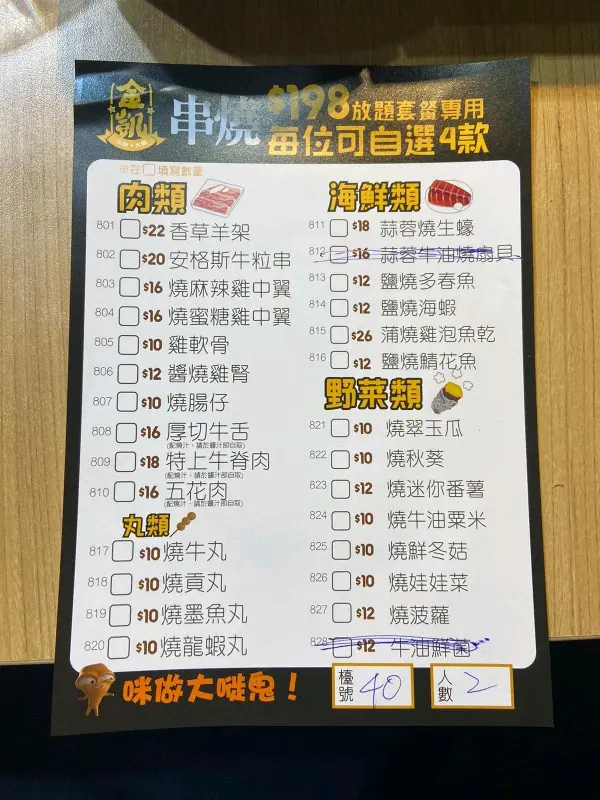 金凱
串燒
$198放題套餐專用
每位可自選4款
※在□填寫數量
肉類
801 $22 香草羊架
802 $20 安格斯牛粒串
803 $16 燒麻辣雞中翼
804 $16 燒蜜糖雞中翼
805 $10 雞軟骨
806 $12 醬燒雞腎
807 $10 燒腸仔
808 $16 厚切牛舌
(配燒汁,請於醬汁部自取)
809 $18 特上牛脊肉
(配燒汁,請於醬汁部自取)
810 $16 五花肉
(配燒汁,請於醬汁部自取)
丸類
817 $10 燒牛丸
818 $10 燒貢丸
819 $10 燒墨魚丸
820 $10 燒龍蝦丸
海鮮類
811 $18 蒜蓉燒生蠔
812 $16 蒜蓉牛油燒扇貝
813 $12 鹽燒多春魚
814 $12 鹽燒海蝦
815 $26 蒲燒雞泡魚乾
816 $12 鹽燒鯖花魚
野菜類
821 $10 燒翠玉瓜
822 $10 燒秋葵
823 $12 燒迷你番薯
824 $10 燒牛油粟米
825 $10 燒鮮冬菇
826 $10 燒娃娃菜
827 $12 燒菠蘿
828 $12 牛油鮮菌
咪做大嘥鬼!
檯號 40
人數 2